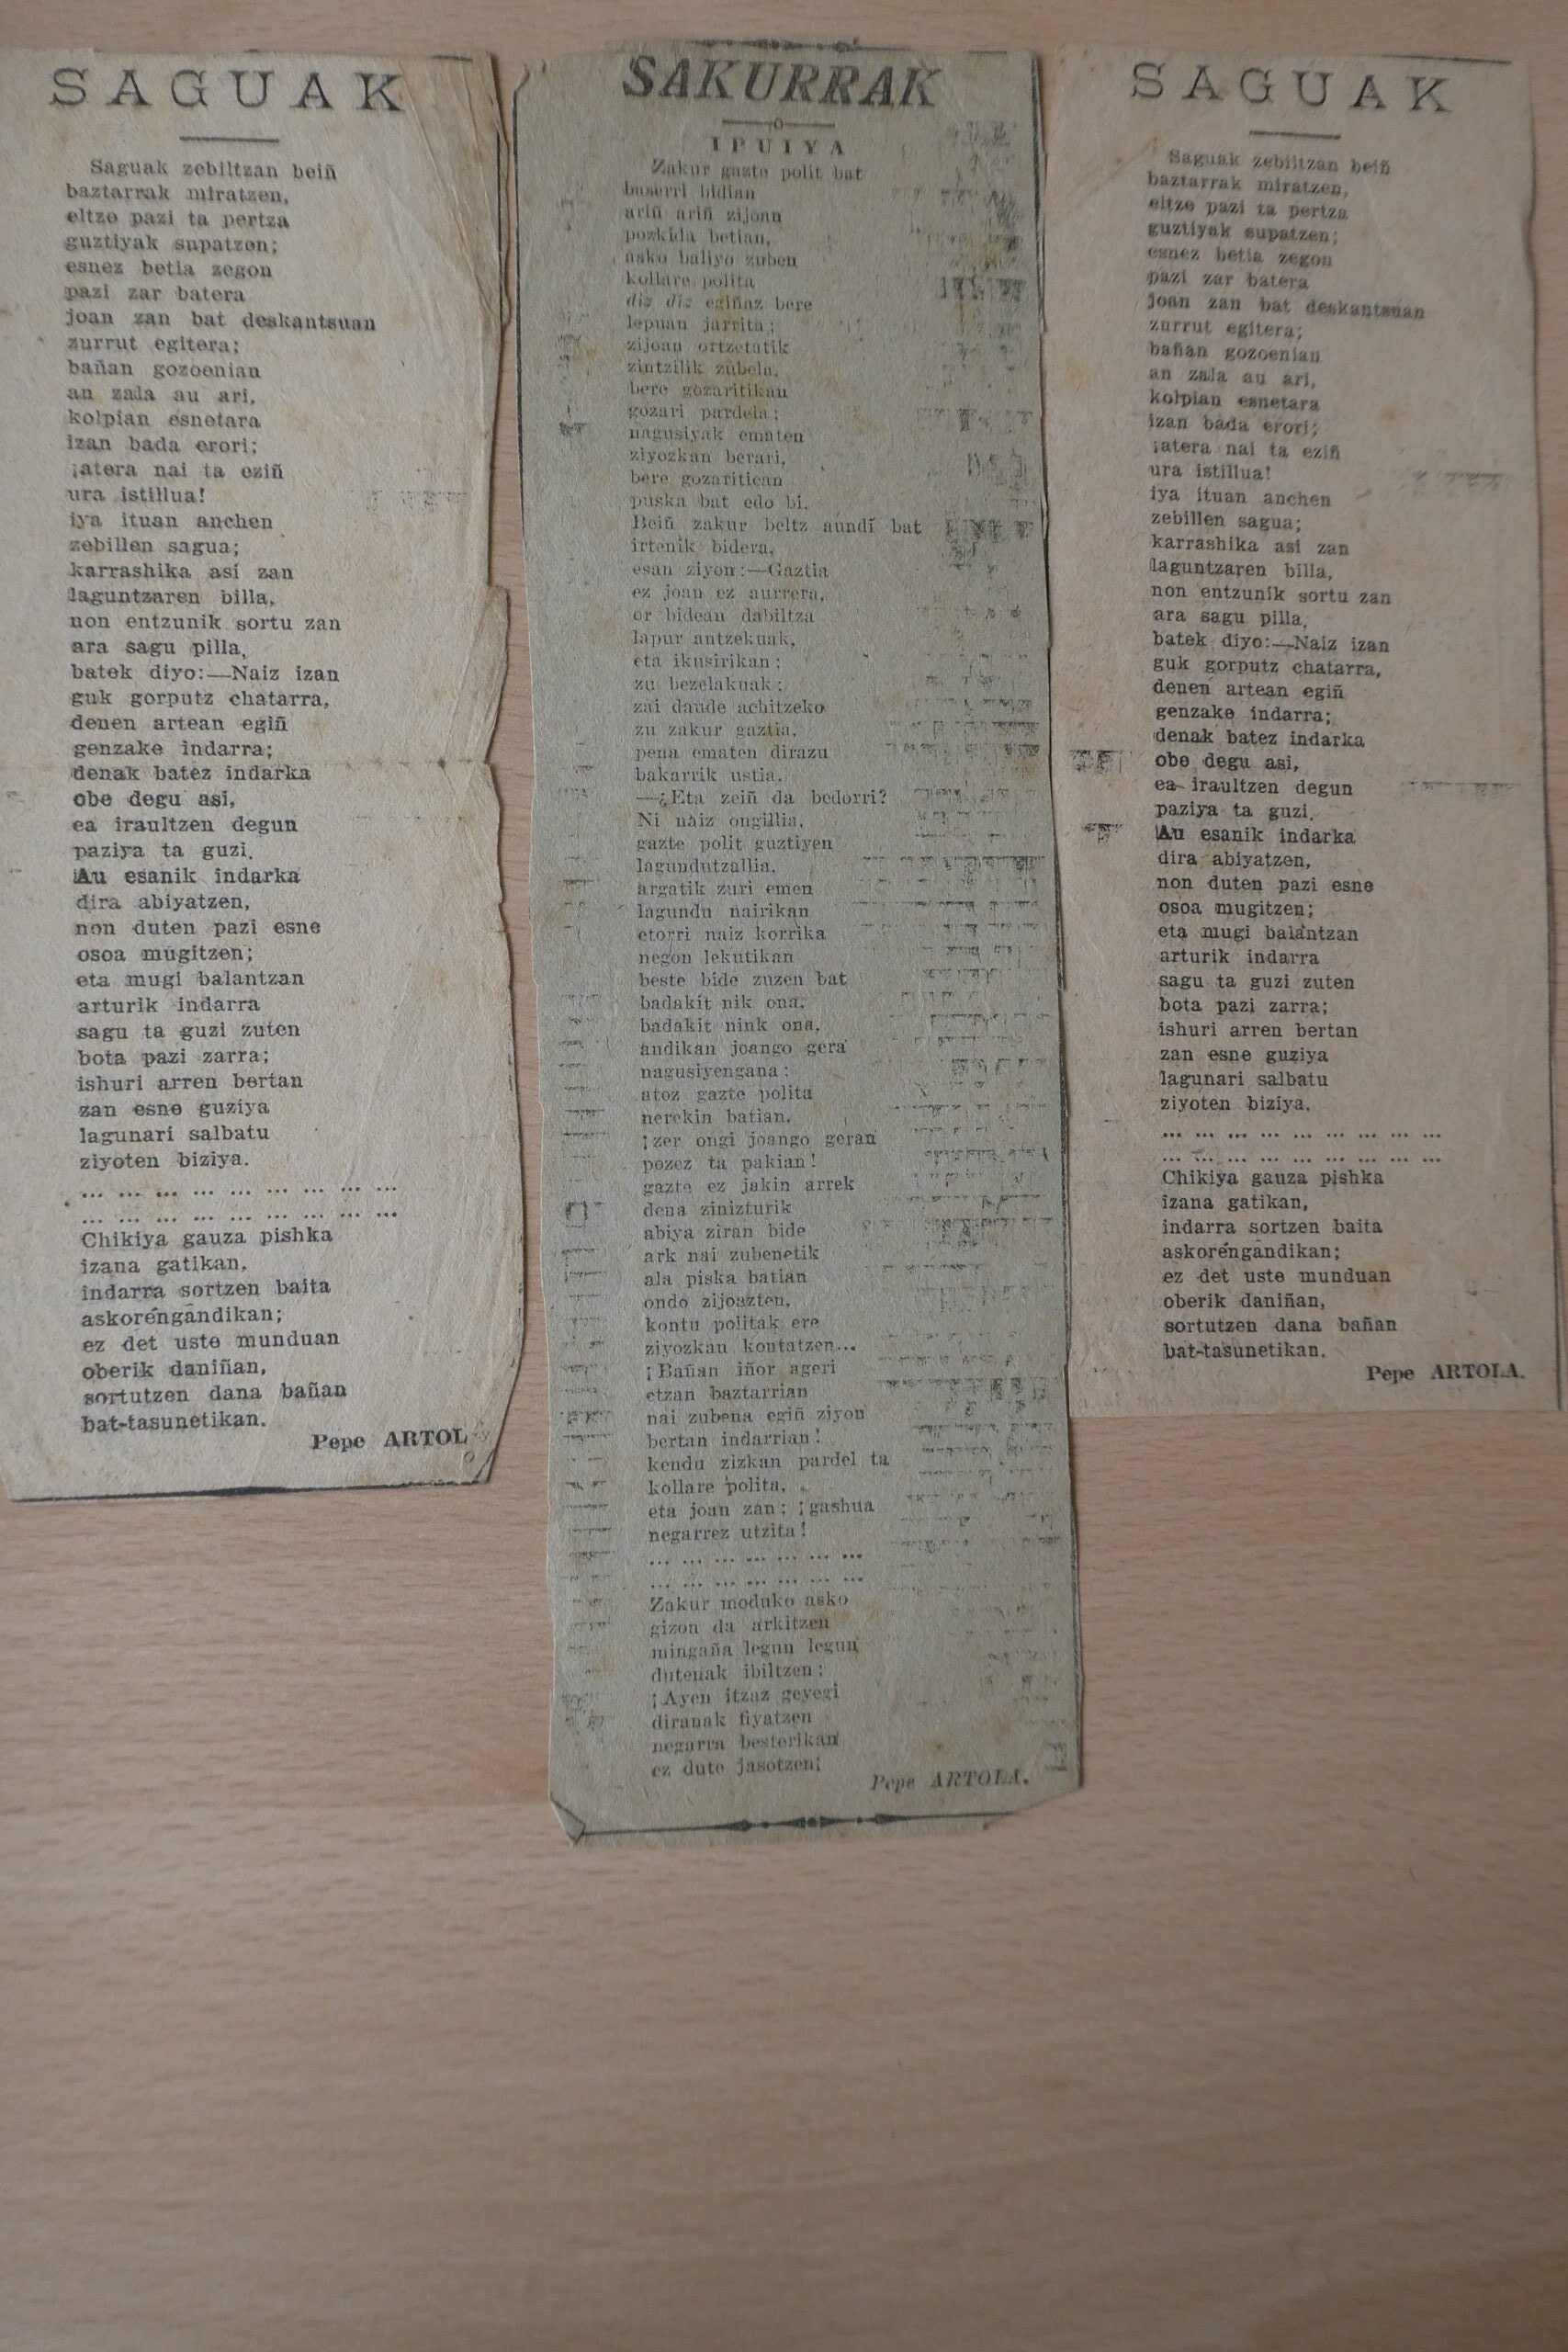 SAGUAK
Saguak zebiltzan beiñ
baztarrak miratzen,
eltze pazi ta pertza
guztiyak supatzen;
esnez betia zegon
pazi zar batera
joan zan bat deskantsuan
zurrut egitera;
bañan gozoenian
an zala au ari,
kolpian esnetara
izan bada erori;
¡atera nai ta eziñ
ura istillua!
iya ituan anchen
zebillen sagua;
karrashika asi zan
laguntzaren billa,
non entzunik sortu zan
ara sagu pilla,
batek diyo:—Naiz izan
guk gorputz chatarra,
denen artean egiñ
genzake indarra;
denak batez indarka
obe degu asi,
ea iraultzen degun
paziya ta guzi.
Au esanik indarka
dira abiyatzen,
non duten pazi esne
osoa mugitzen;
eta mugi balantzan
arturik indarra
sagu ta guzi zuten
bota pazi zarra;
ishuri arren bertan
zan esne guziya
lagunari salbatu
ziyoten biziya.
... ... ... ... ... ... ... ... ...
... ... ... ... ... ... ... ... ...
Chikiya gauza pishka
izana gatikan,
indarra sortzen baita
askoréngandikan;
ez det uste munduan
oberik daniñan,
sortutzen dana bañan
bat-tasunetikan.
Pepe ARTOL
SAKURRAK
IPUIYA
Zakur gazte polit bat
baserri bidian
ariñ ariñ zijoan
pozkida betian,
asko baliyo zuben
kollare polita
diz diz egiñaz bere
lepuan jarrita;
zijoan ortzetatik
zintzilik zubela,
bere gozaritikan
gozari pardela;
nagusiyak ematen
ziyozkan berari,
bere gozaritican
puska bat edo bi.
Beiñ zakur beltz aundi bat
irtenik bidera,
esan ziyon:—Gaztia
ez joan ez aurrera,
or bidean dabiltza
lapur antzekuak,
eta ikusirikan;
zu bezelakuak;
zai daude achitzeko
zu zakur gaztia,
pena ematen dirazu
bakarrik ustia.
—¿Eta zeiñ da bedorri?
Ni naiz ongillia,
gazte polit guztiyen
lagundutzallia,
argatik zuri emen
lagundu nairikan
etorri naiz korrika
negon lekutikan
beste bide zuzen bat
badakit nik ona,
badakit nink ona,
andikan joango gera
nagusiyengana:
atoz gazte polita
nerekin batian,
¡zer ongi joango geran
pozez ta pakian!
gazte ez jakin arrek
dena zinizturik
abiya ziran bide
ark nai zubenetik
ala piska batian
ondo zijoazten,
kontu politak ere
ziyozkan kontatzen...
¡Bañan iñor ageri
etzan baztarrian
nai zubena egiñ ziyon
bertan indarrian!
kendu zizkan pardel ta
kollare polita,
eta joan zan; ¡gashua
negarrez utzita!
... ... ... ... ... ... ...
... ... ... ... ... ... ...
Zakur moduko asko
gizon da arkitzen
mingaña legun legun
dutenak ibiltzen;
¡Ayen itzaz geyegi
diranak fiyatzen
negarra besterikan
ez dute jasotzen¡
Pepe ARTOLA.
SAGUAK
Saguak zebiltzan beiñ
baztarrak miratzen,
eltze pazi ta pertza
guztiyak supatzen;
esnez betia zegon
pazi zar batera
joan zan bat deskantsuan
zurrut egitera;
bañan gozoenian
an zala au ari,
kolpian esnetara
izan bada erori;
¡atera nai ta eziñ
ura istillua!
iya ituan anchen
zebillen sagua;
karrashika asi zan
laguntzaren billa,
non entzunik sortu zan
ara sagu pilla,
batek diyo:—Naiz izan
guk gorputz chatarra,
denen artean egiñ
genzake indarra;
denak batez indarka
obe degu asi,
ea iraultzen degun
paziya ta guzi.
Au esanik indarka
dira abiyatzen,
non duten pazi esne
osoa mugitzen;
eta mugi balantzan
arturik indarra
sagu ta guzi zuten
bota pazi zarra;
ishuri arren bertan
zan esne guziya
lagunari salbatu
ziyoten biziya.
... ... ... ... ... ... ... ... ...
... ... ... ... ... ... ... ... ...
Chikiya gauza pishka
izana gatikan,
indarra sortzen baita
askoréngandikan;
ez det uste munduan
oberik daniñan,
sortutzen dana bañan
bat-tasunetikan.
Pepe ARTOLA.